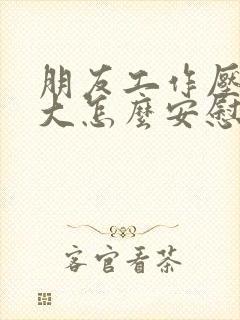 朋友工作压
大怎麼安慰
客官看茶